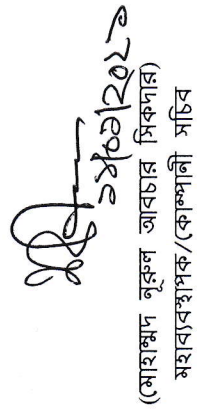 ১৯/০৯/২০২১
(মোহাম্মদ নূরুল আবচার সিকদার)
মহাব্যবস্থাপক/কোম্পানী সচিব